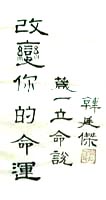 改變你的命運
一立命說
韓廷傑